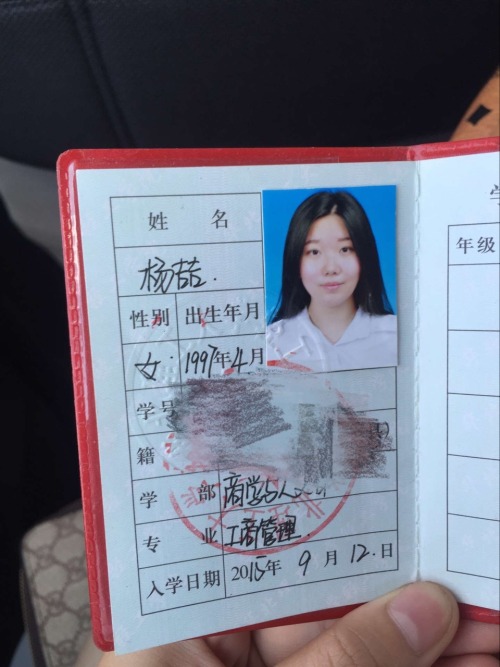 姓 名
杨喆.
性别 出生年月
女. 1997年4月
学号
籍
学 部 商学与人
专 业 工商管理.
入学日期 2015年 9月 12.日
学
年级